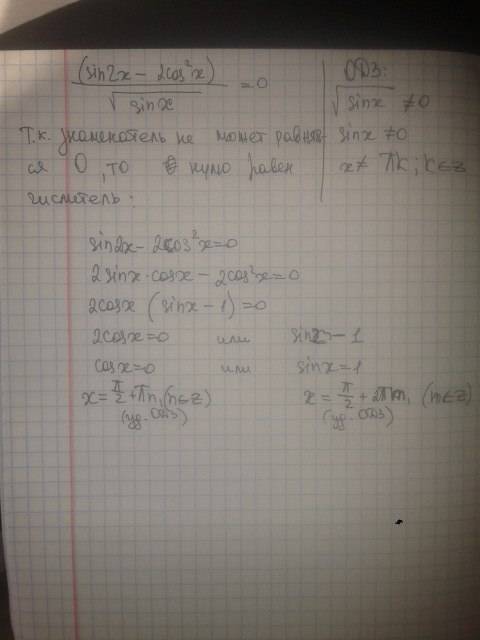 (sin2x - 2cos²x) / √sinx = 0
ОДЗ:
√sinx ≠0
sinx ≠0
x≠ πk; k∈z
Т.к. знаменатель не может равнять-
ся 0, то нулю равен
числитель:
sin2x - 2cos²x=0
2sinx·cosx - 2cos²x=0
2cosx (sinx - 1)=0
2cosx=0 или sinx - 1
cosx=0 или sinx=1
x=π/2+πn, (n∈z) x = π/2 + 2πn, (n∈z)
(уд. ОДЗ) (уд. ОДЗ)